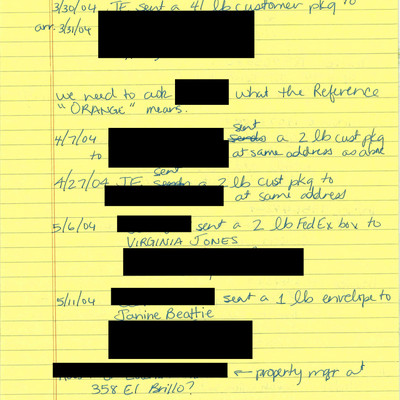 3/30/04 JE sent a 41 lb customer pkg to
arr. 3/31/04
we need to ask what the Reference
"ORANGE" means.
4/7/04 sent a 2 lb cust pkg
to at same address as above
4/27/04 JE sent a 2 lb cust pkg to
at same address
5/6/04 sent a 2 lb FedEx box to
VIRGINIA JONES
5/11/04 sent a 1 lb envelope to
Janine Beattie
← property mgr at
358 El Brillo?